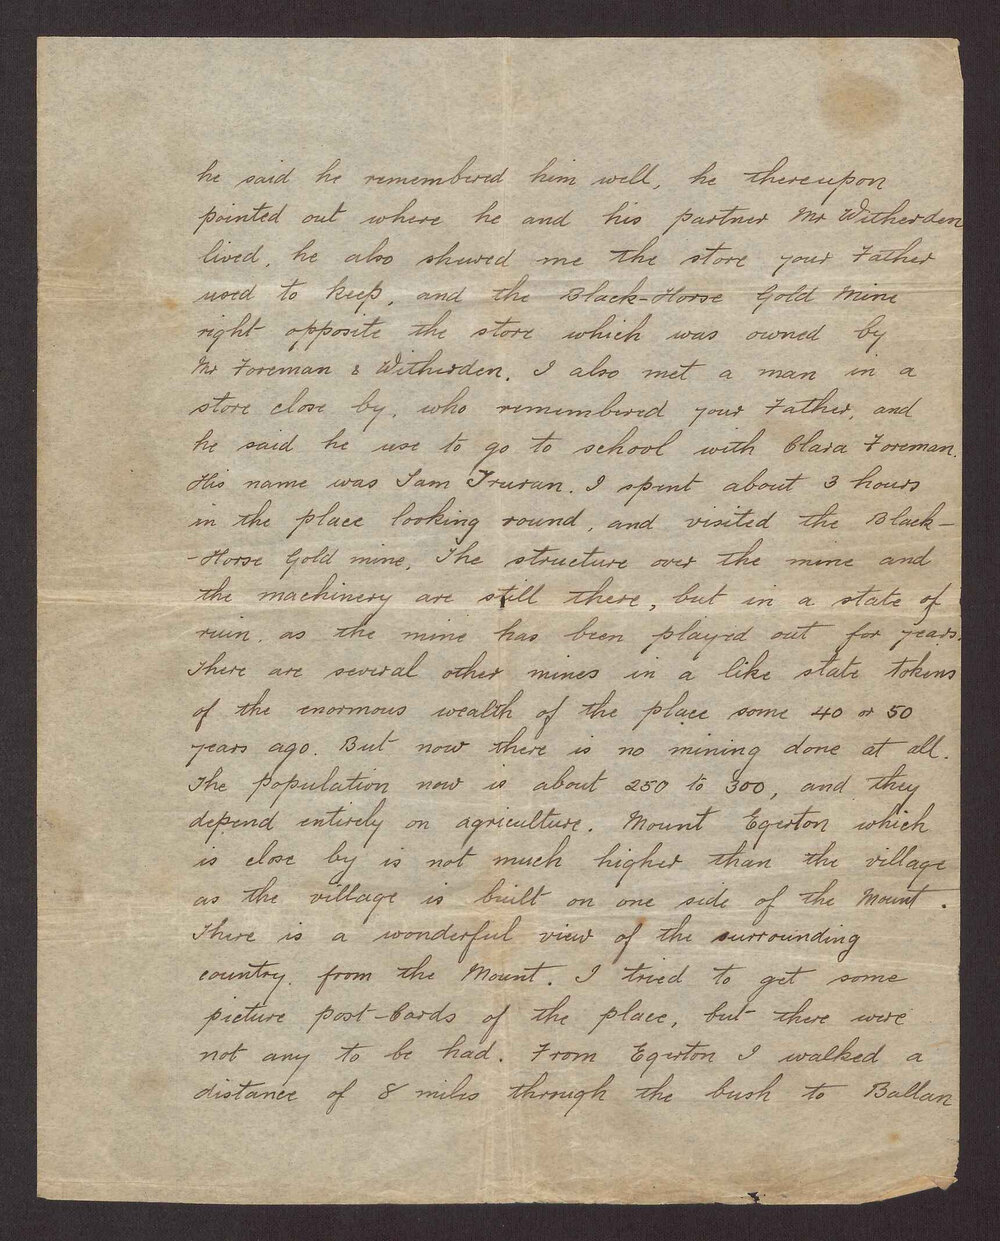 he said he remembered him well, he thereupon
pointed out where he and his partner Mr Witherden
lived, he also shewed me the store your Father
used to keep, and the Black-Horse Gold Mine
right opposite the store which was owned by
Mr Foreman & Witherden. I also met a man in a
store close by, who remembered your Father, and
he said he use to go to school with Clara Foreman.
His name was Sam Truran. I spent about 3 hours
in the place looking round, and visited the Black-
-Horse Gold mine. The structure over the mine and
the machinery are still there, but in a state of
ruin, as the mine has been played out for years.
There are several other mines in a like state tokens
of the enormous wealth of the place some 40 or 50
years ago. But now there is no mining done at all.
The population now is about 250 to 300, and they
depend entirely on agriculture. Mount Egerton which
is close by is not much higher than the village
as the village is built on one side of the Mount.
There is a wonderful view of the surrounding
country from the Mount. I tried to get some
picture post-Cards of the place, but there were
not any to be had. From Egerton I walked a
distance of 8 miles through the bush to Ballan